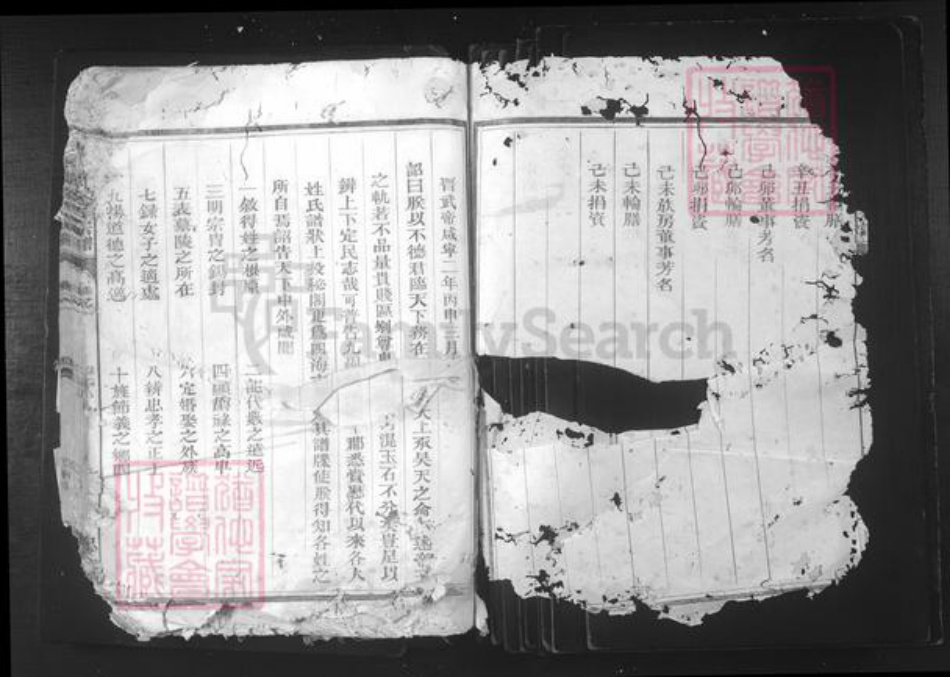 辛丑捐資
己卯董事芳名
己卯輪膳
己卯捐資
己未族房董事芳名
己未輪膳
己未捐資
晉武帝咸寧二年丙申三月
詔曰朕以不德君臨天下務在 大上承昊天之命
之軌若不品量貴賤區別尊卑 混玉石不分 豈足以
辨上下定民志哉可普告九 悉賫歷代以來各大
姓氏譜狀上投秘閣更為四海 其譜牒使朕得知各姓之
所自焉詔告天下中外咸聞
一敘得姓之根源 二記代數之遠近
三明宗胄之錫封 四顯爵祿之高卑
五表墓陵之所在 六定婚娶之外族
七錄女子之適處 八耕忠孝之正
九揚道德之高邁 十旌節義之鄉閭
譜學會
收藏
FamilySearch